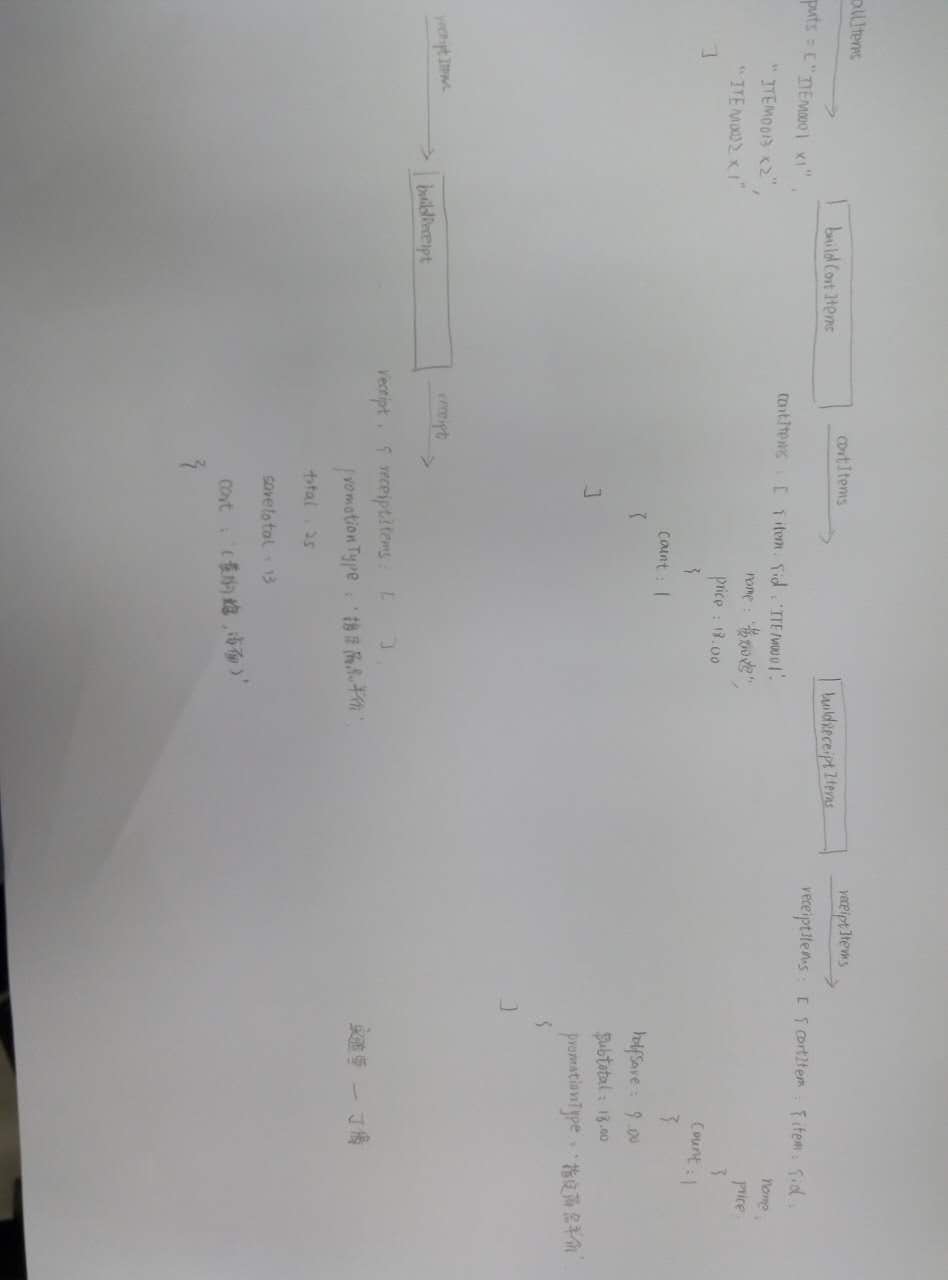 allItems
puts = ["ITEM0001 x1",
"ITEM0013 x2",
"ITEM0022 x1"
]
buildCartItems
cartItems
cartItems : [ {item: {id : 'ITEM0001',
name : '黄焖鸡",
price : 18.00
}
count : 1
}
]
buildReceiptItems
receiptItems
receiptItems : [ {cartItem : {item : {id :
name :
price :
}
count : 1
}
halfSave : 9.00
subtotal : 18.00
promotionType : '指定商品半价'
}
]
receiptItems
buildReceipt
receipt
receipt : { receiptItems : [ ],
promotionType : '指定商品半价',
total : 25
saveTotal : 13
cart : '(黄焖鸡,凉皮)'
}
实验室 一 丁